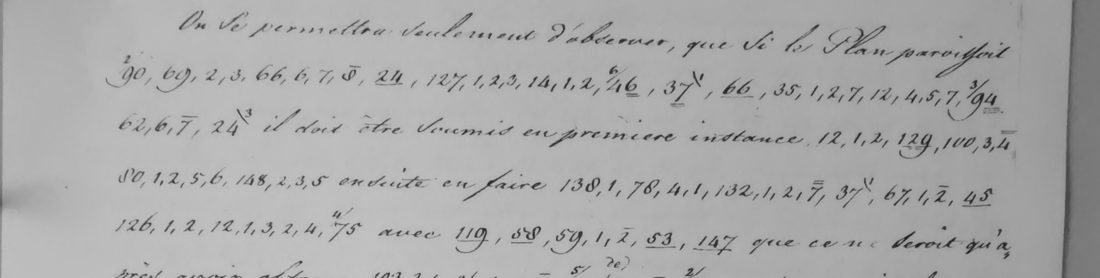 On se permettra seulement d'observer, que si le Plan paroissoit
²90, 69, 2, 3, 66, 6, 7, 8̅, 24, 127, 1, 2, 3, 14, 1, 2, ⁶/46, 37\¹, 66, 35, 1, 2, 7, 12, 4, 5, 7, ³/94
62, 6, 7̅, 24\³ il doit être soumis en premiere instance 12, 1, 2, 129, 100, 3, 4̿
80, 1, 2, 5, 6, 148, 2, 3, 5 ensuite en faire 138, 1, 78, 4, 1, 132, 1, 2, 7̿, 37\¹, 67, 1, 2̅, 45
126, 1, 2, 12, 1, 3, 2, 4, ⁴/75 avec 119, 58, 59, 1, 2̅, 53, 147 que ce ne seroit qu'a,